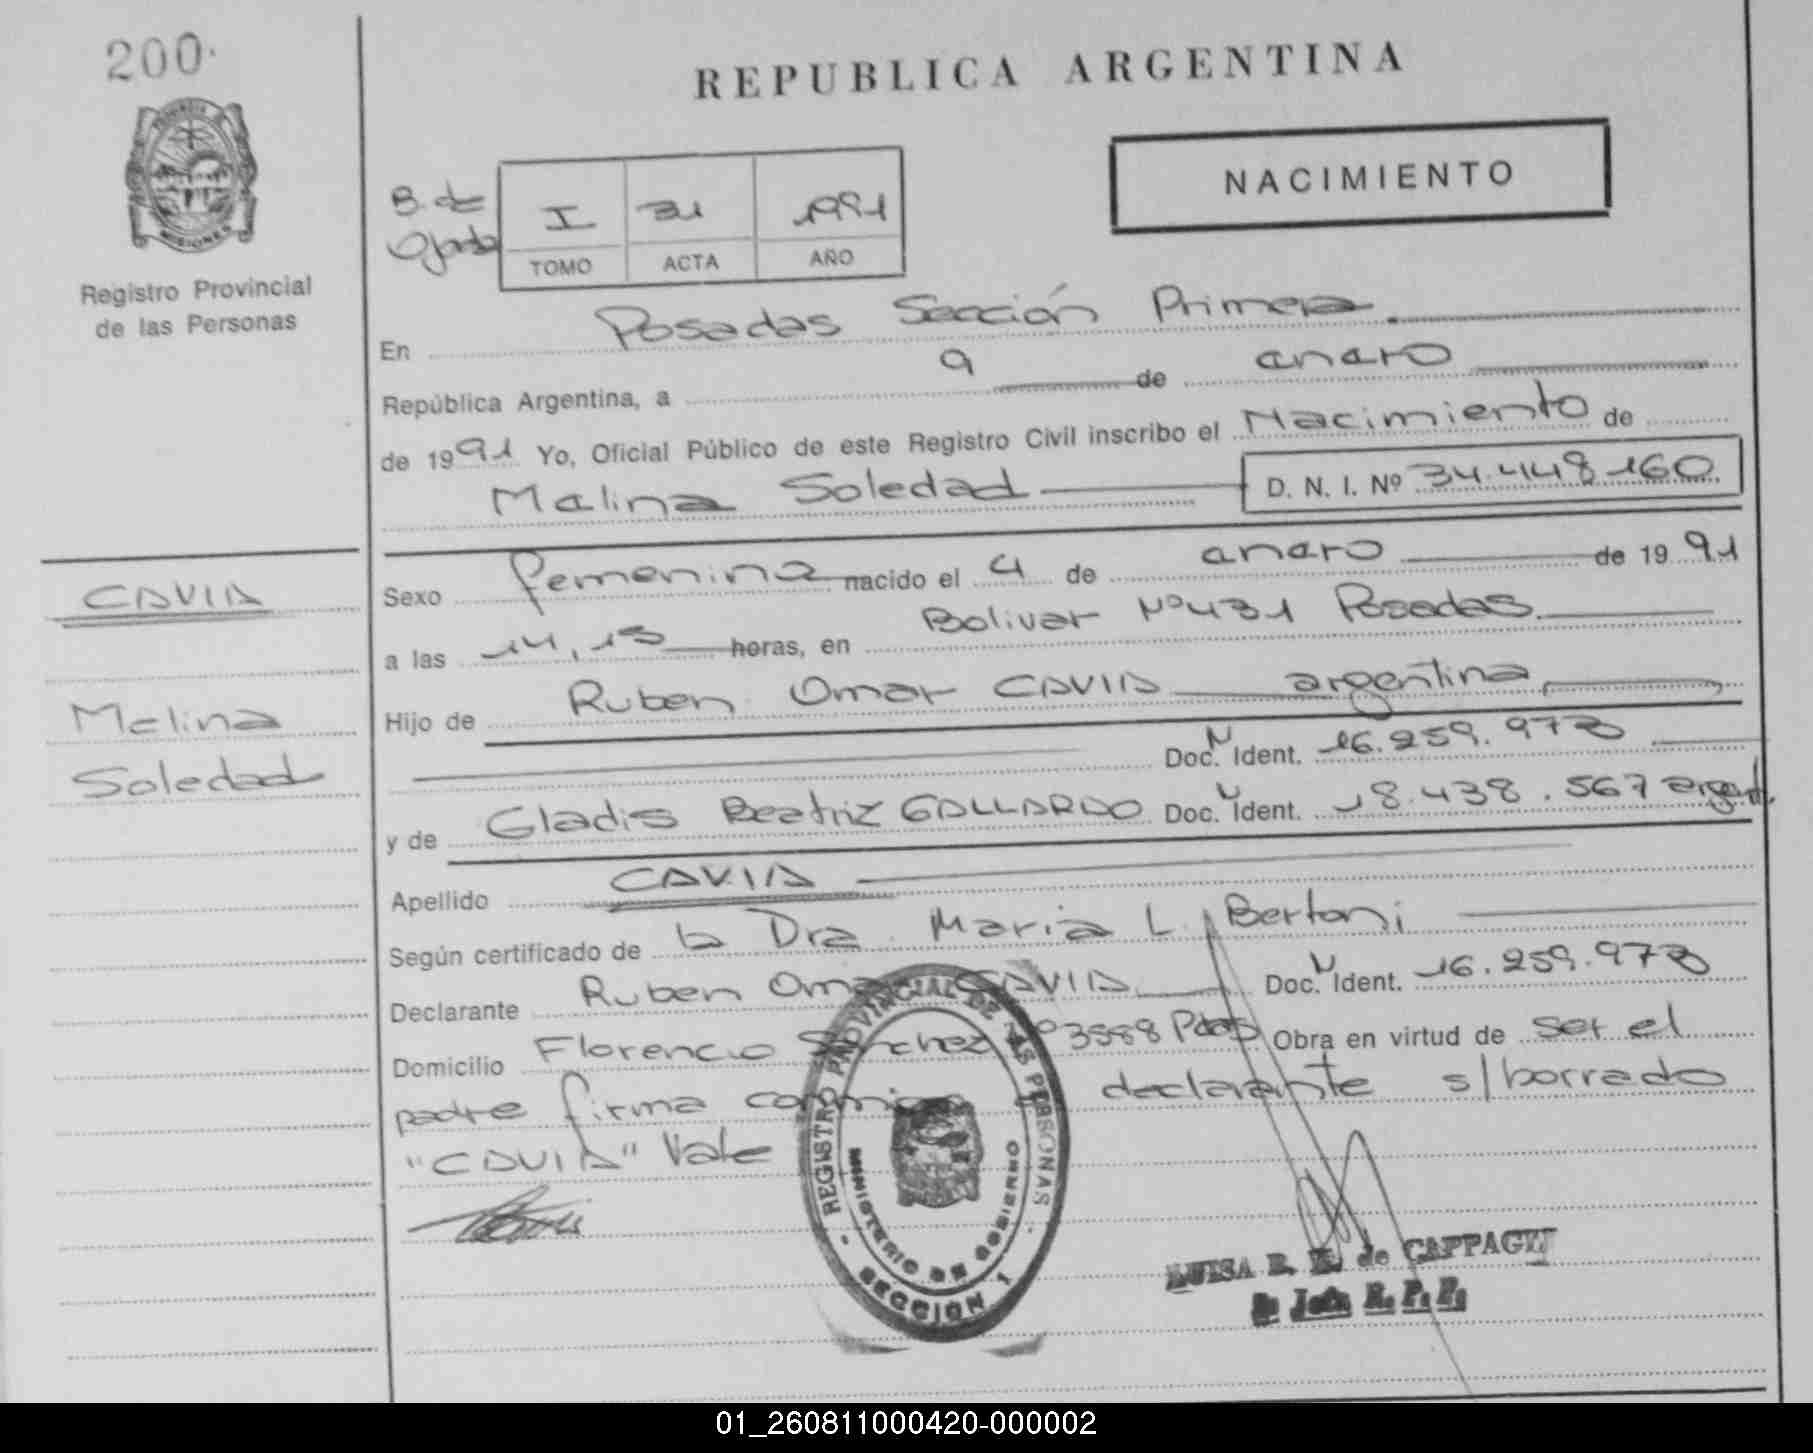 200.
REPUBLICA ARGENTINA
NACIMIENTO
B. de
I 31 1991
TOMO ACTA AÑO
Registro Provincial
de las Personas
MISIONES
En Posadas Sección Primera
República Argentina, a 9 de enero
de 1991 Yo, Oficial Público de este Registro Civil inscribo el Nacimiento de
Melina Soledad D. N. I. Nº 34.448.160
CAVIA
Sexo femenina nacido el 4 de enero de 1991
a las 14,15 horas, en Bolivar Nº431 Posadas
Melina
Hijo de Ruben Omar CAVIA argentina
Soledad
Doc. N Ident. 16.259.973
y de Gladis Beatriz GALLARDO Doc. N Ident. 18.438.567 argent.
Apellido CAVIA
Según certificado de la Dra Maria L. Bertoni
Declarante Ruben Omar CAVIA Doc. N Ident. 16.259.973
Domicilio Florencio Sanchez Nº 3558 Pdas Obra en virtud de ser el
padre firma conmigo el declarante s/borrado
"CAVIA" Vale
REGISTRO PROVINCIAL DE LAS PERSONAS
MINISTERIO DE GOBIERNO
SECCION 1
LUISA de CAPPAGLI
Jefa R. P. P.
01_260811000420-000002